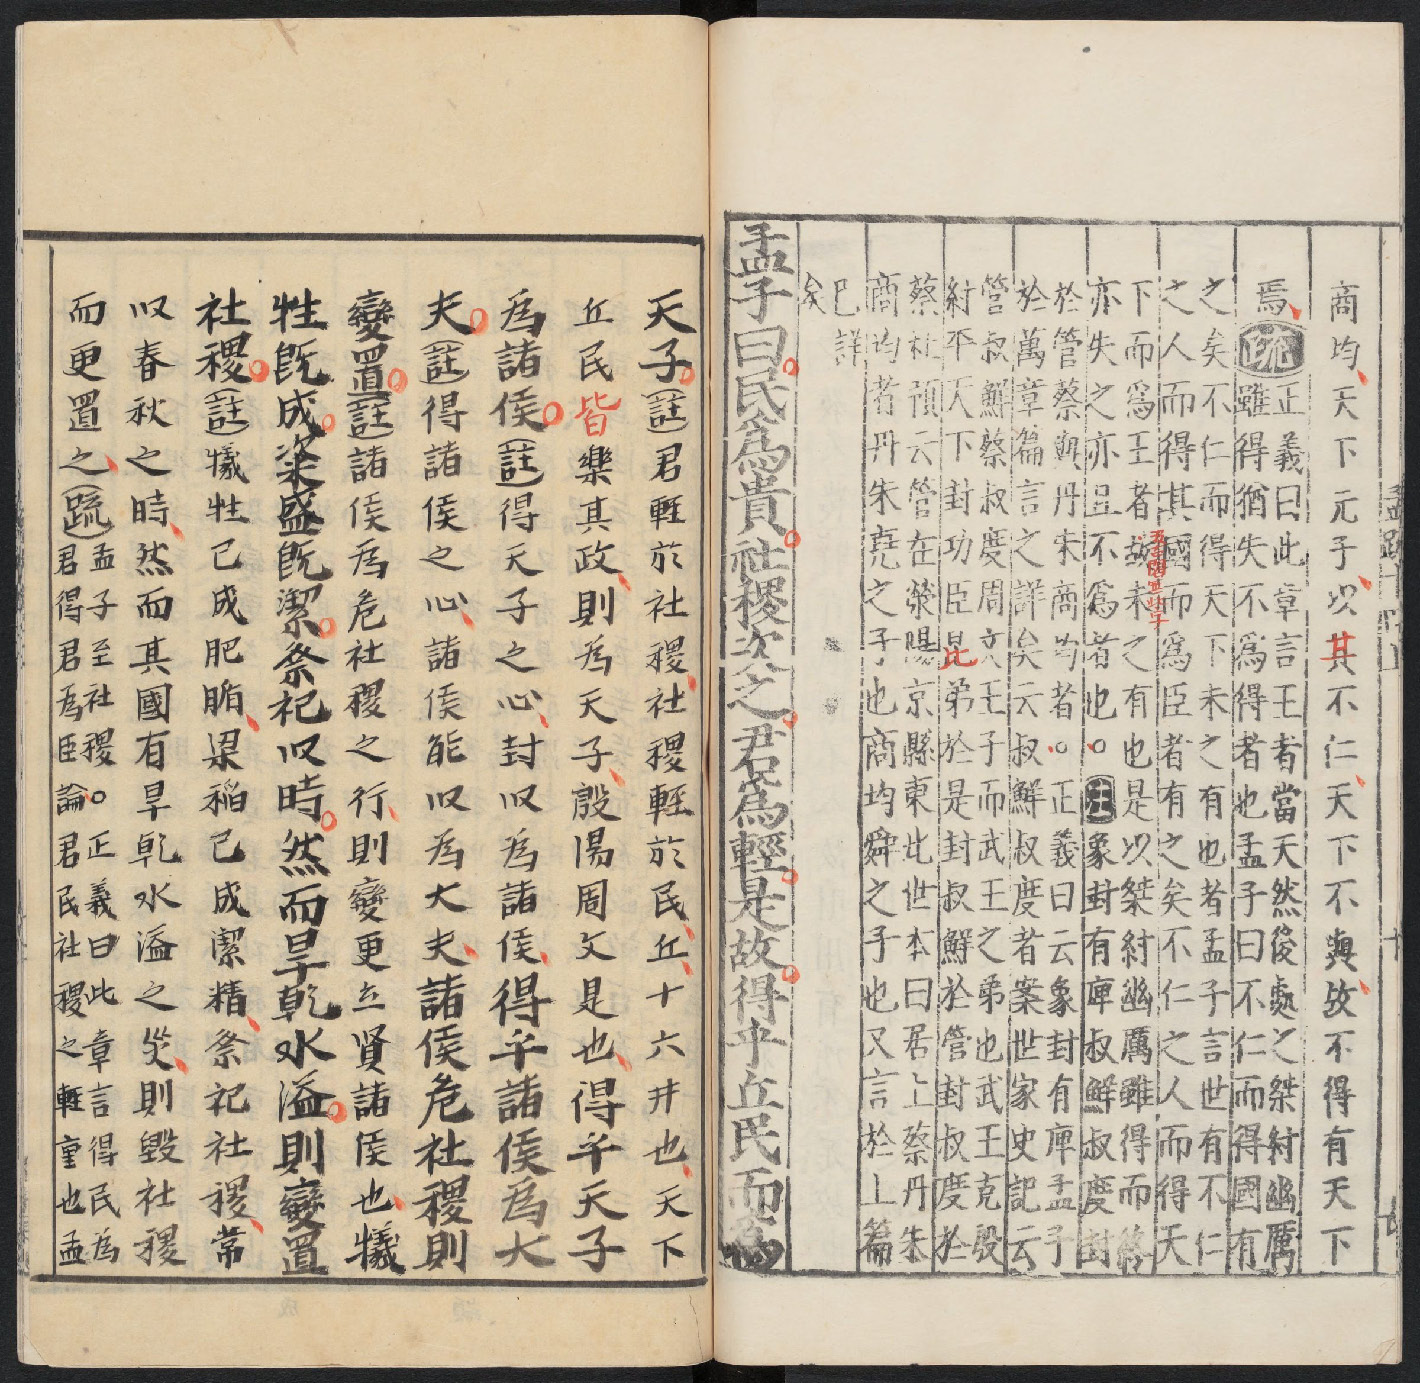 商均天下元子以其不仁天下不與故不得有天下
焉疏正義曰此章言王者當天然後處之桀紂幽厲
雖得猶失不爲得者也孟子曰不仁而得國有
之矣不仁而得天下未之有也者孟子言世有不仁
之人而得其國而爲臣者有之矣不仁之人而得天
下而爲王者故未之有也是以桀紂幽厲雖得而終
亦失之亦豈不爲者也。注象封有庳叔鮮叔度封
於管蔡與丹朱商均者。正義曰云象封有庳孟子
於萬章篇言之詳矣云叔鮮叔度者案世家史記云
管叔鮮蔡叔度周文王子而武王之弟也武王克殷
紂平天下封功臣昆弟於是封叔鮮於管封叔度於
蔡杜預云管在滎陽京縣東北世本曰居上蔡丹朱
商均者丹朱堯之子也商均舜之子也又言於上篇
已詳
矣
孟子曰民爲貴社稷次之君爲輕是故得乎丘民而爲
孟疏十四上
天子註君輕於社稷社稷輕於民丘十六井也天下
丘民皆樂其政則為天子殷湯周文是也得乎天子
為諸侯註得天子之心封以為諸侯得乎諸侯為大
夫註得諸侯之心諸侯能以為大夫諸侯危社稷則
變置註諸侯為危社稷之行則變更立賢諸侯也犧
牲既成粢盛既潔祭祀以時然而旱乾水溢則變置
社稷註犧牲已成肥腯粱稻已成潔精祭祀社稷常
以春秋之時然而其國有旱乾水溢之災則毀社稷
而更置之疏孟子至社稷。正義曰此章言得民為
君得君為臣論君民社稷之輕重也孟